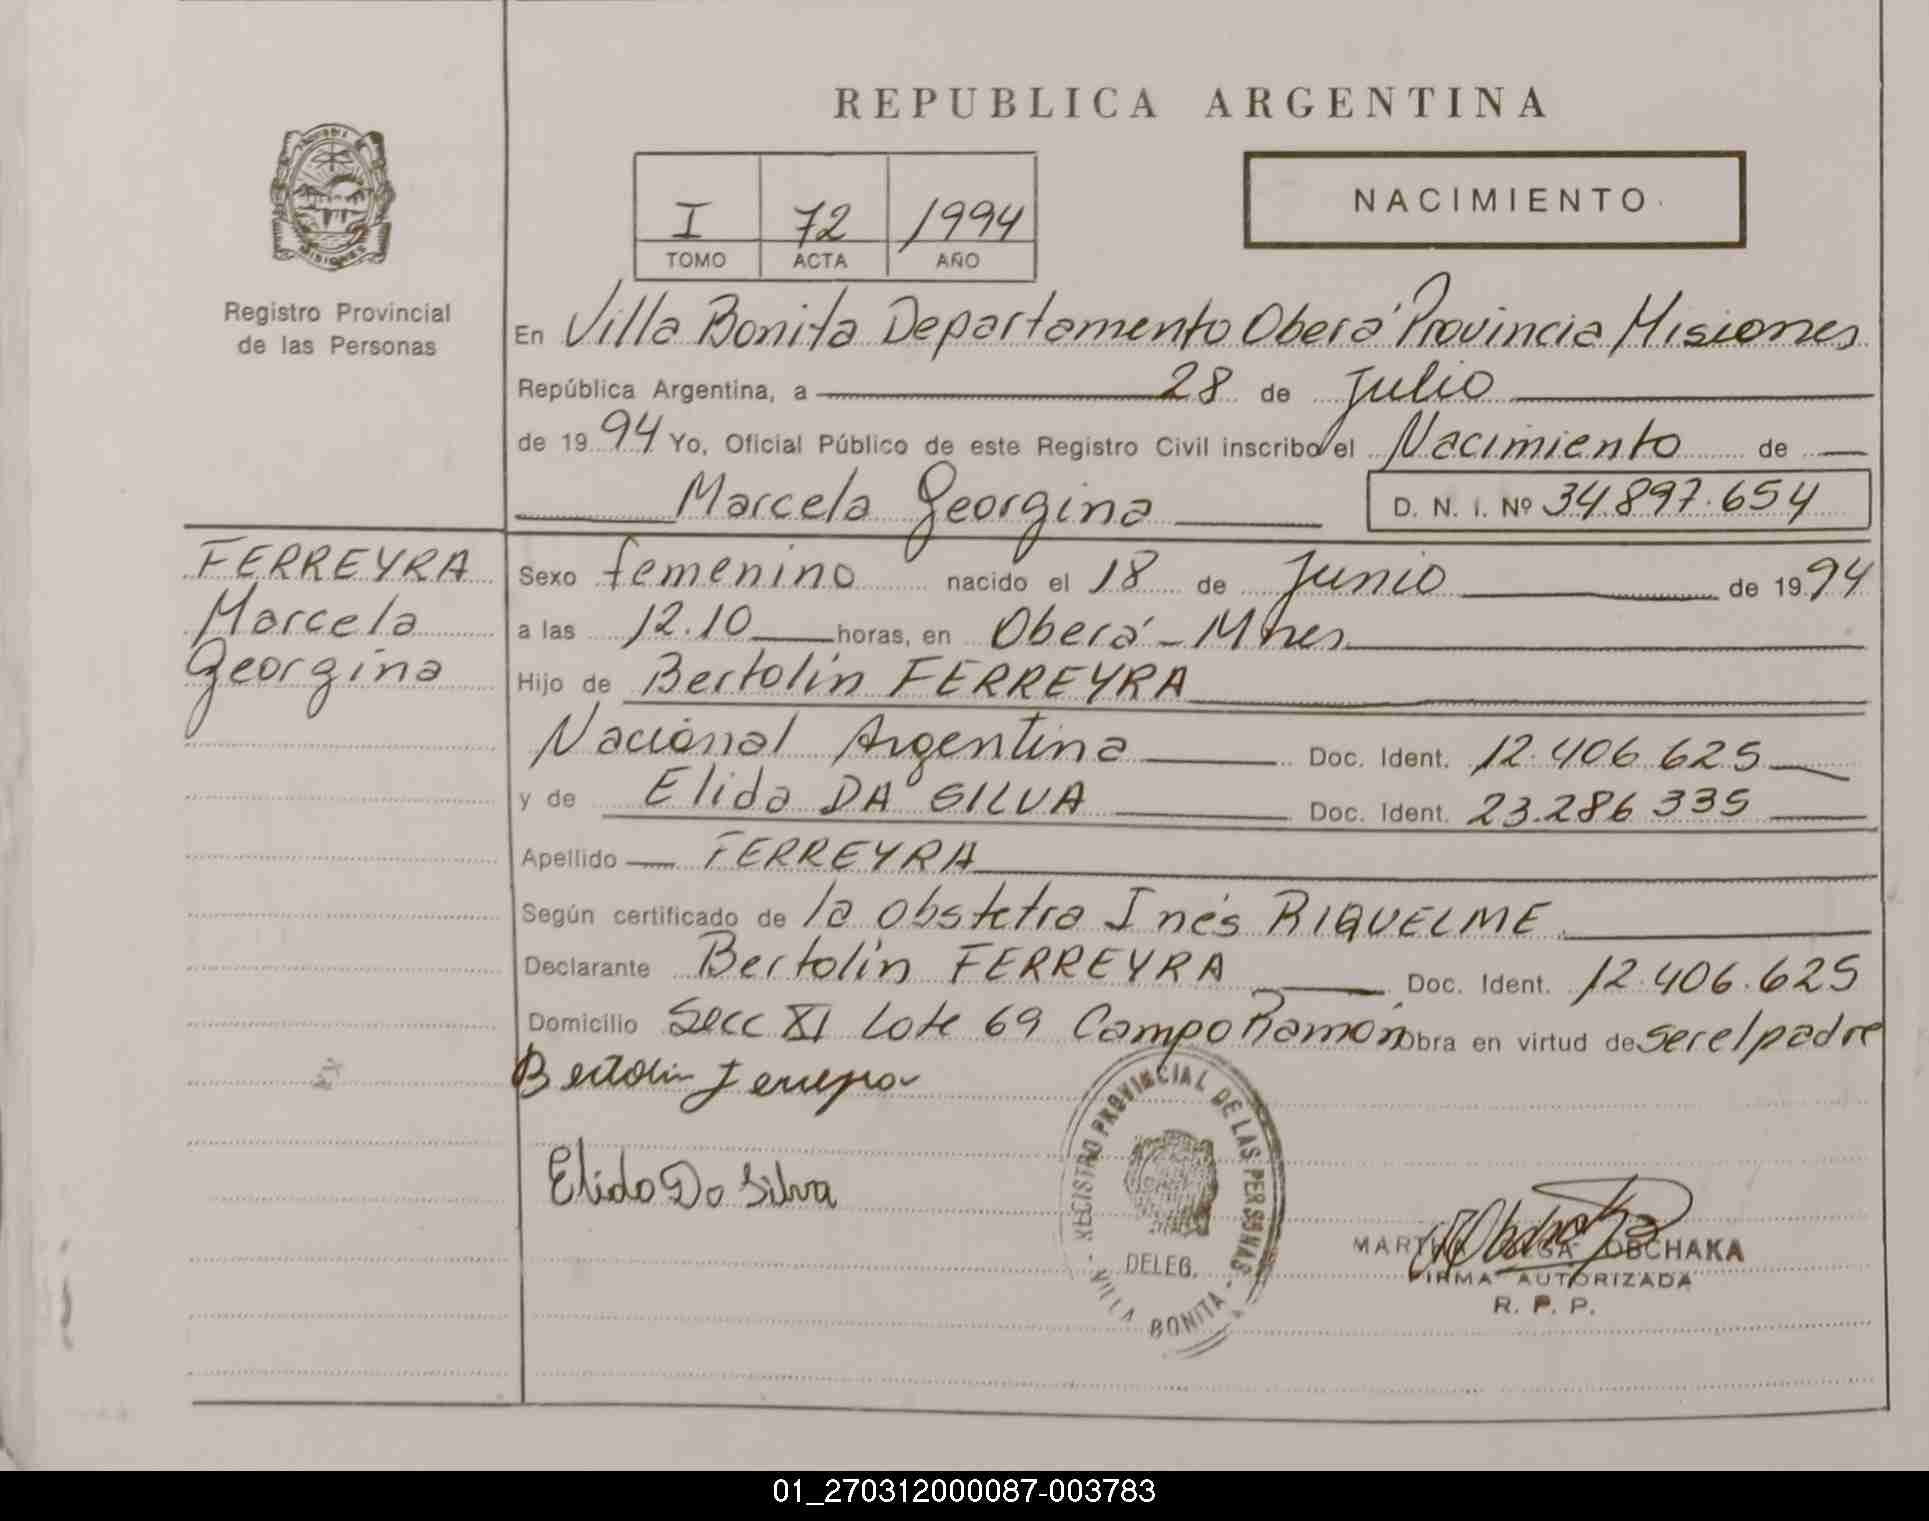 REPUBLICA ARGENTINA
MISIONES
Registro Provincial
de las Personas
I 72 1994
TOMO ACTA AÑO
NACIMIENTO
En Villa Bonita Departamento Oberá Provincia Misiones
República Argentina, a 28 de Julio
de 1994 Yo, Oficial Público de este Registro Civil inscribo el Nacimiento de
Marcela Georgina D. N. I. Nº 34.897.654
FERREYRA
Marcela
Georgina
Sexo femenino nacido el 18 de Junio de 1994
a las 12.10 horas, en Oberá - Mnes
Hijo de Bertolin FERREYRA
Nacional Argentina Doc. Ident. 12.406.625
y de Elida DA SILVA Doc. Ident. 23.286.335
Apellido FERREYRA
Según certificado de la obstetra Inés RIQUELME
Declarante Bertolin FERREYRA Doc. Ident. 12.406.625
Domicilio Secc XI Lote 69 Campo Ramón Obra en virtud de ser el padre
Bertolin Ferreyra
Elida Da Silva
REGISTRO PROVINCIAL DE LAS PERSONAS
DELEG.
- VILLA BONITA -
MARTHA OLGA OBCHAKA
FIRMA AUTORIZADA
R. P. P.
01_270312000087-003783